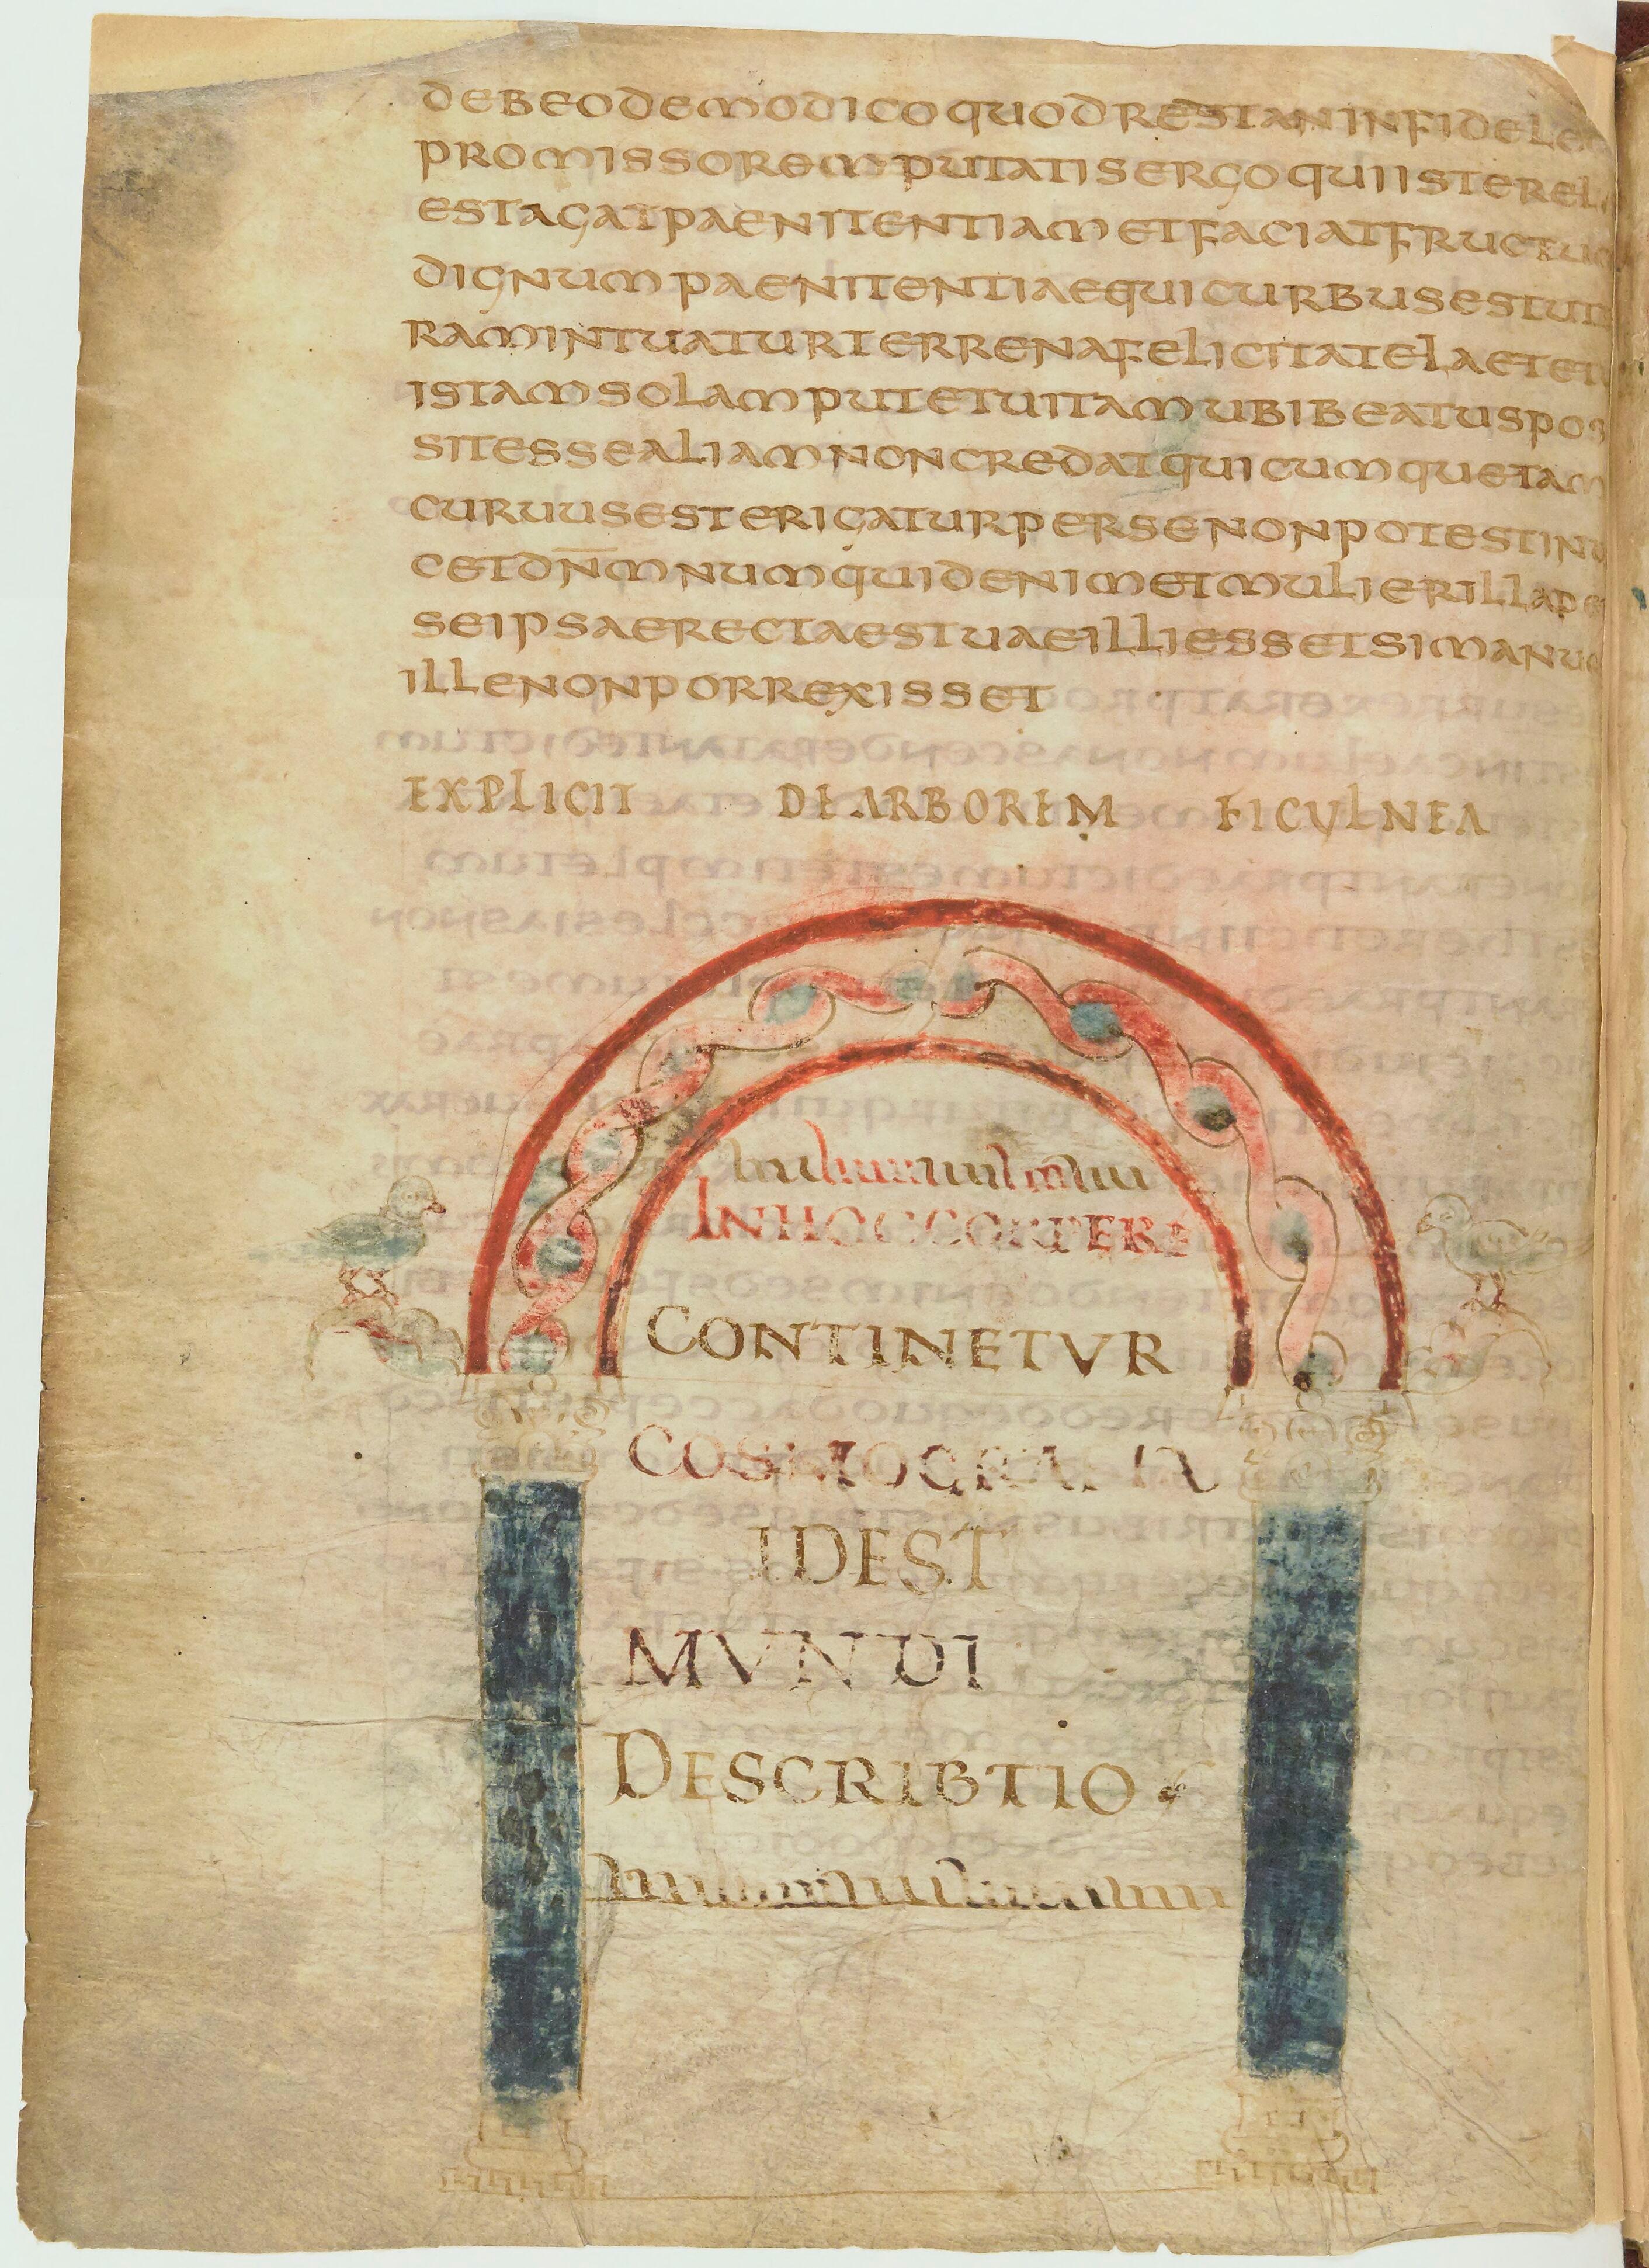 DEBEODEMODICOQUODRESTANINFIDELE
PROMISSOREMPUTATISERGOQUIISTEREL
ESTAGATPAENITENTIAMETFACIATFRUCTUC
DIGNUMPAENITENTIAEQUICURBUSESTUT
RAMINTUATURTERRENAFELICITATELAETET
ISTAMSOLAMPUTETUITAMUBIBEATUSPOS
SITESSEALIAMNONCREDATQUICUMQUETAM
CURUUSESTERIGATURPERSENONPOTESTINU
CETDN̅MNUMQUIDENIMETMULIERILLAPE
SEIPSAERECTAESTUAEILLIESSETSIMANU
ILLENONPORREXISSET
EXPLICIT DEARBOREM FICULNEA
INHOCCORPERE
CONTINETVR
COSMOGRAFIA
IDEST
MVNDI
DESCRIBTIO